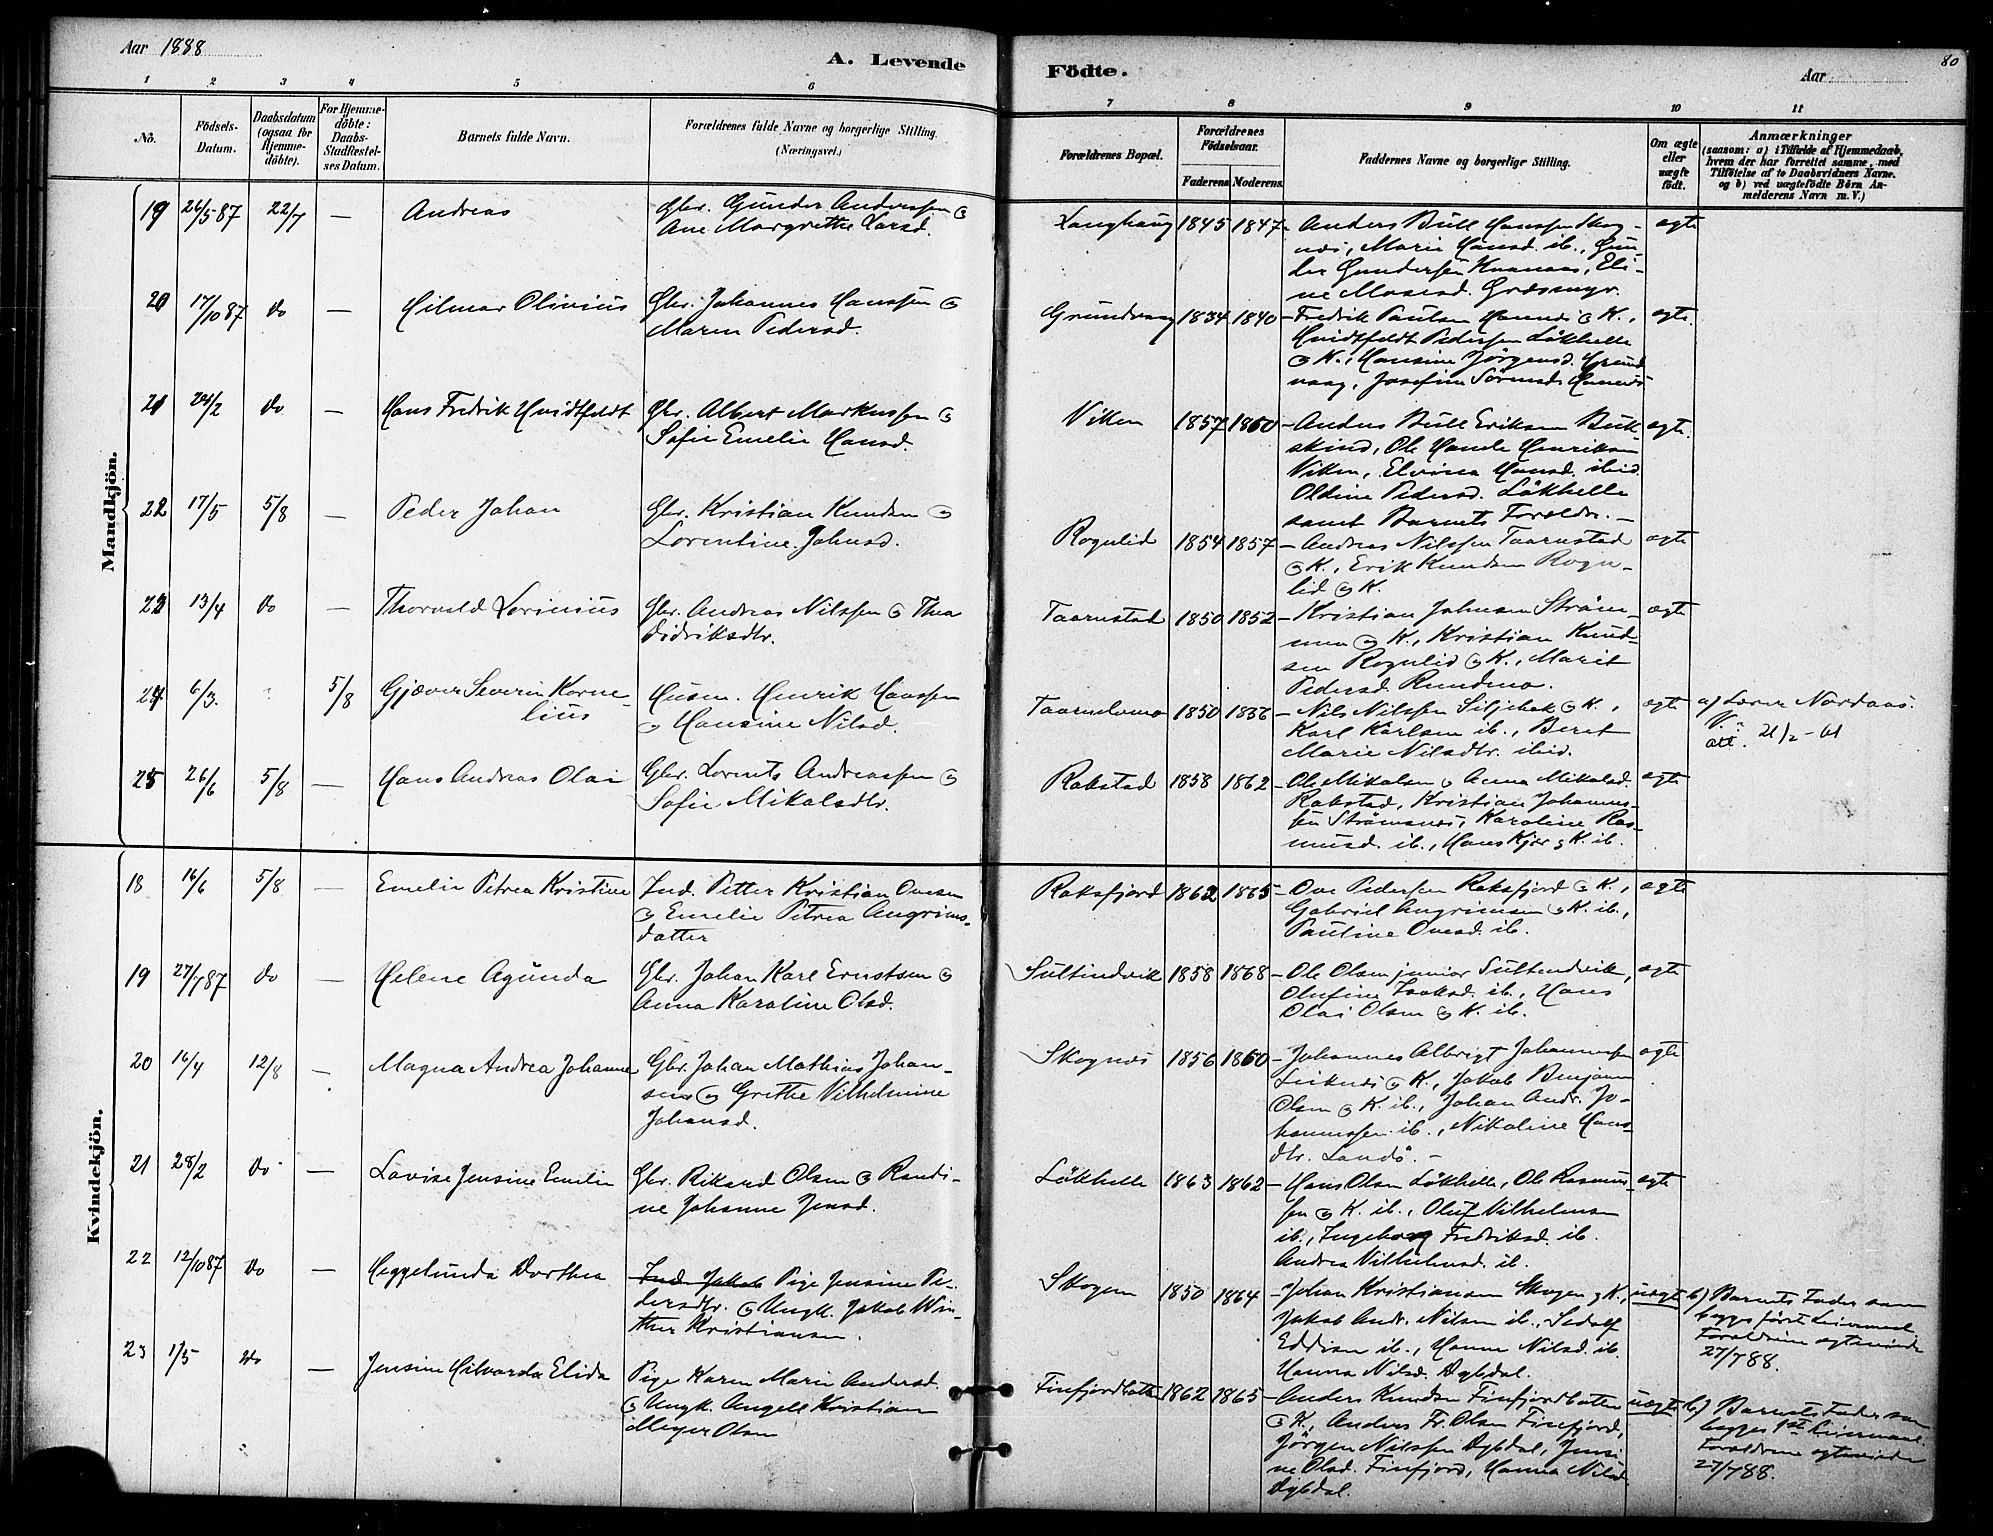 Aar 1888
A. Levende
Födte.
Aar
80
1 2 3 4 5 6 7 8 9 10 11
No.
Födsels-
Datum.
Daabsdatum
(ogsaa for
Hjemme-
döbte).
For Hjemme-
döbte:
Daabs-
Stadfæstel-
ses Datum.
Barnets fulde Navn.
Forældrenes fulde Navne og borgerlige Stilling.
(Næringsvei.)
Forældrenes Bopæl.
Forældrenes
Födselsaar.
Faderens Moderens.
Faddernes Navne og borgerlige Stilling.
Om ægte
eller
uægte
födt.
Anmærkninger
(saasom: a) i Tilfælde af Hjemmedaab,
hvem der har forrettet samme, med
Tilföielse af to Daabsvidners Navne.
og b) ved uægtefödte Börn An-
melderens Navn m. V.)
Mandkjön.
19 26/5 87 22/7 — Andreas
Gbr. Gunder Anderssen og
Ane Margrethe Larsd.
Langhaug 1845 1847 - Anders Bull Hanssen Skog-
næs, Marie Hansd. ib., Gun-
der Gundersen Kvanaas, Eli-
ne Mosesd. Græsmyr.
ægte
20 17/10 87 do — Hilmar Olivius
Gbr. Johannes Hanssen og
Maren Pedersd.
Grundvaag 1834 1840 - Fredrik Paulsen Hannæs og K.,
Hvidtfeldt Pedersen Løkhelle
og K., Hansine Jörgensd. Grund
vaag, Josefine Sörensd. Hannæs
ægte.
21 24/2 do — Hans Fredrik Hvidtfeldt
Gbr. Albert Markussen og
Sofie Emelie Hansd.
Viken 1857 1860 - Anders Bull Eriksen Buk-
skind, Ole Hansle Henriksen
Viken, Elvina Hansd. ibid.
Oldine Pedersd. Løkhelle
samt Barnets Foreldre. —
ægte.
22 17/5 5/8 — Peder Johan
Gbr. Kristian Knudsen og
Lorentine Johnsd.
Rognlid 1854 1857 - Andreas Nilssen Taarnstad
og K., Erik Knudsen Rogn-
lid og K.
ægte
23 13/4 do — Thorvald Lorinius
Gbr. Andreas Nilssen og Thea
Didriksdtr.
Taarnstad 1850 1852 - Kristian Johnsen Ström-
men og K., Kristian Knud-
sen Rognlid og K., Marit
Pedersd. Rundmo.
ægte
24 6/3. 5/8 Gjæver Severin Korne-
lius
Husm. Henrik Hanssen
og Hansine Nilsd.
Taarnelvmo 1850 1836 - Nils Nilssen Siljebæk og K.,
Karl Karlsen ib., Beret
Marie Nilsdtr. ibid.
ægte a) Lærer Nordaas.
V.
att. 21/2-61
25 26/6 5/8 — Hans Andreas Olai
Gbr. Lorents Andreassen og
Sofie Mikalsdtr.
Rakstad 1858 1862 - Ole Mikalsen og Anna Mikalsd.
Rakstad, Kristian Johannes-
sen Strömsnæs, Karoline Ras-
musd. ib., Hans Kjær og K. ib.
ægte
Kvindekjön.
18 16/6 5/8 — Emelie Petrea Kristine
Ind. Petter Kristian Ovesen
og Emelie Petrea Angrims-
datter
Raksfjord 1862 1865 - Ove Pedersen Raksfjord og K.,
Gabriel Angrimsen og K. ib.,
Pauline Ovesd. ib.
ægte
19 27/7 87 do — Helene Agunda
Gbr. Johan Karl Ernstsen og
Anna Karoline Olsd.
Sultindvik 1858 1868 - Ole Olsen junior Sultindvik,
Olufine Isaksd. ib., Hans
Olai Olsen og K. ib.
ægte
20 16/4 12/8 — Magna Andrea Johanne
Gbr. Johan Mathias Johan-
sen og Grethe Vilhelmine
Johansd.
Skognæs 1856 1860 - Johannes Albrigt Johannessen
Leiknæs og K., Jakob Benjamin
Olsen og K. ib., Johan Andr. Jo-
hannessen ib., Nikoline Hans-
dtr. Sandö. -
ægte
21 28/2 Do — Lovise Jensine Emelie
Gbr. Rikard Olsen og Randi-
ne Johanne Jensd.
Løkhelle 1863 1862 - Hans Olsen Løkhelle, Ole Rasmus-
sen og K. ib., Oluf Vilhelmsen
ib., Ingeborg Fredriksd. ib.
Andrea Vilhelmsd. ib.
ægte
22 12/10 87 Do — Heggelunda Dorthea
Ind. Jakob Pige Jensine Pe-
dersdtr. og Ungk. Jakob Win-
ther Kristiansen.
Skogen 1850 1864 - Johan Kristiansen Skogen og K.,
Jakob Andr. Nilsen ib., Sedolf
Eddisen ib., Hanna Nilsd. ib.
Hanna Nilsd. Dybdal.
uægte b) Barnets Fader som
begges först Leiermaal.
Foreldrene ægteviede
27/7 88.
23 1/5 Do — Jensine Hilvarda Elida
Pige Karen Marie Andersd.
og Ungk. Angell Kristian
Meyer Olsen
Finfjordbotten 1862 1865 - Anders Knudsen Finfjordbotten
og K., Anders Fr. Olsen Finfjord,
Jörgen Nilssen Dybdal, Jensi-
ne Olsd. Finfjord, Hanna Nilsd.
Dybdal.
uægte b) Barnets Fader som
begges 1ste Leiermaal.
Foreldrene ægteviede
27/7 88.